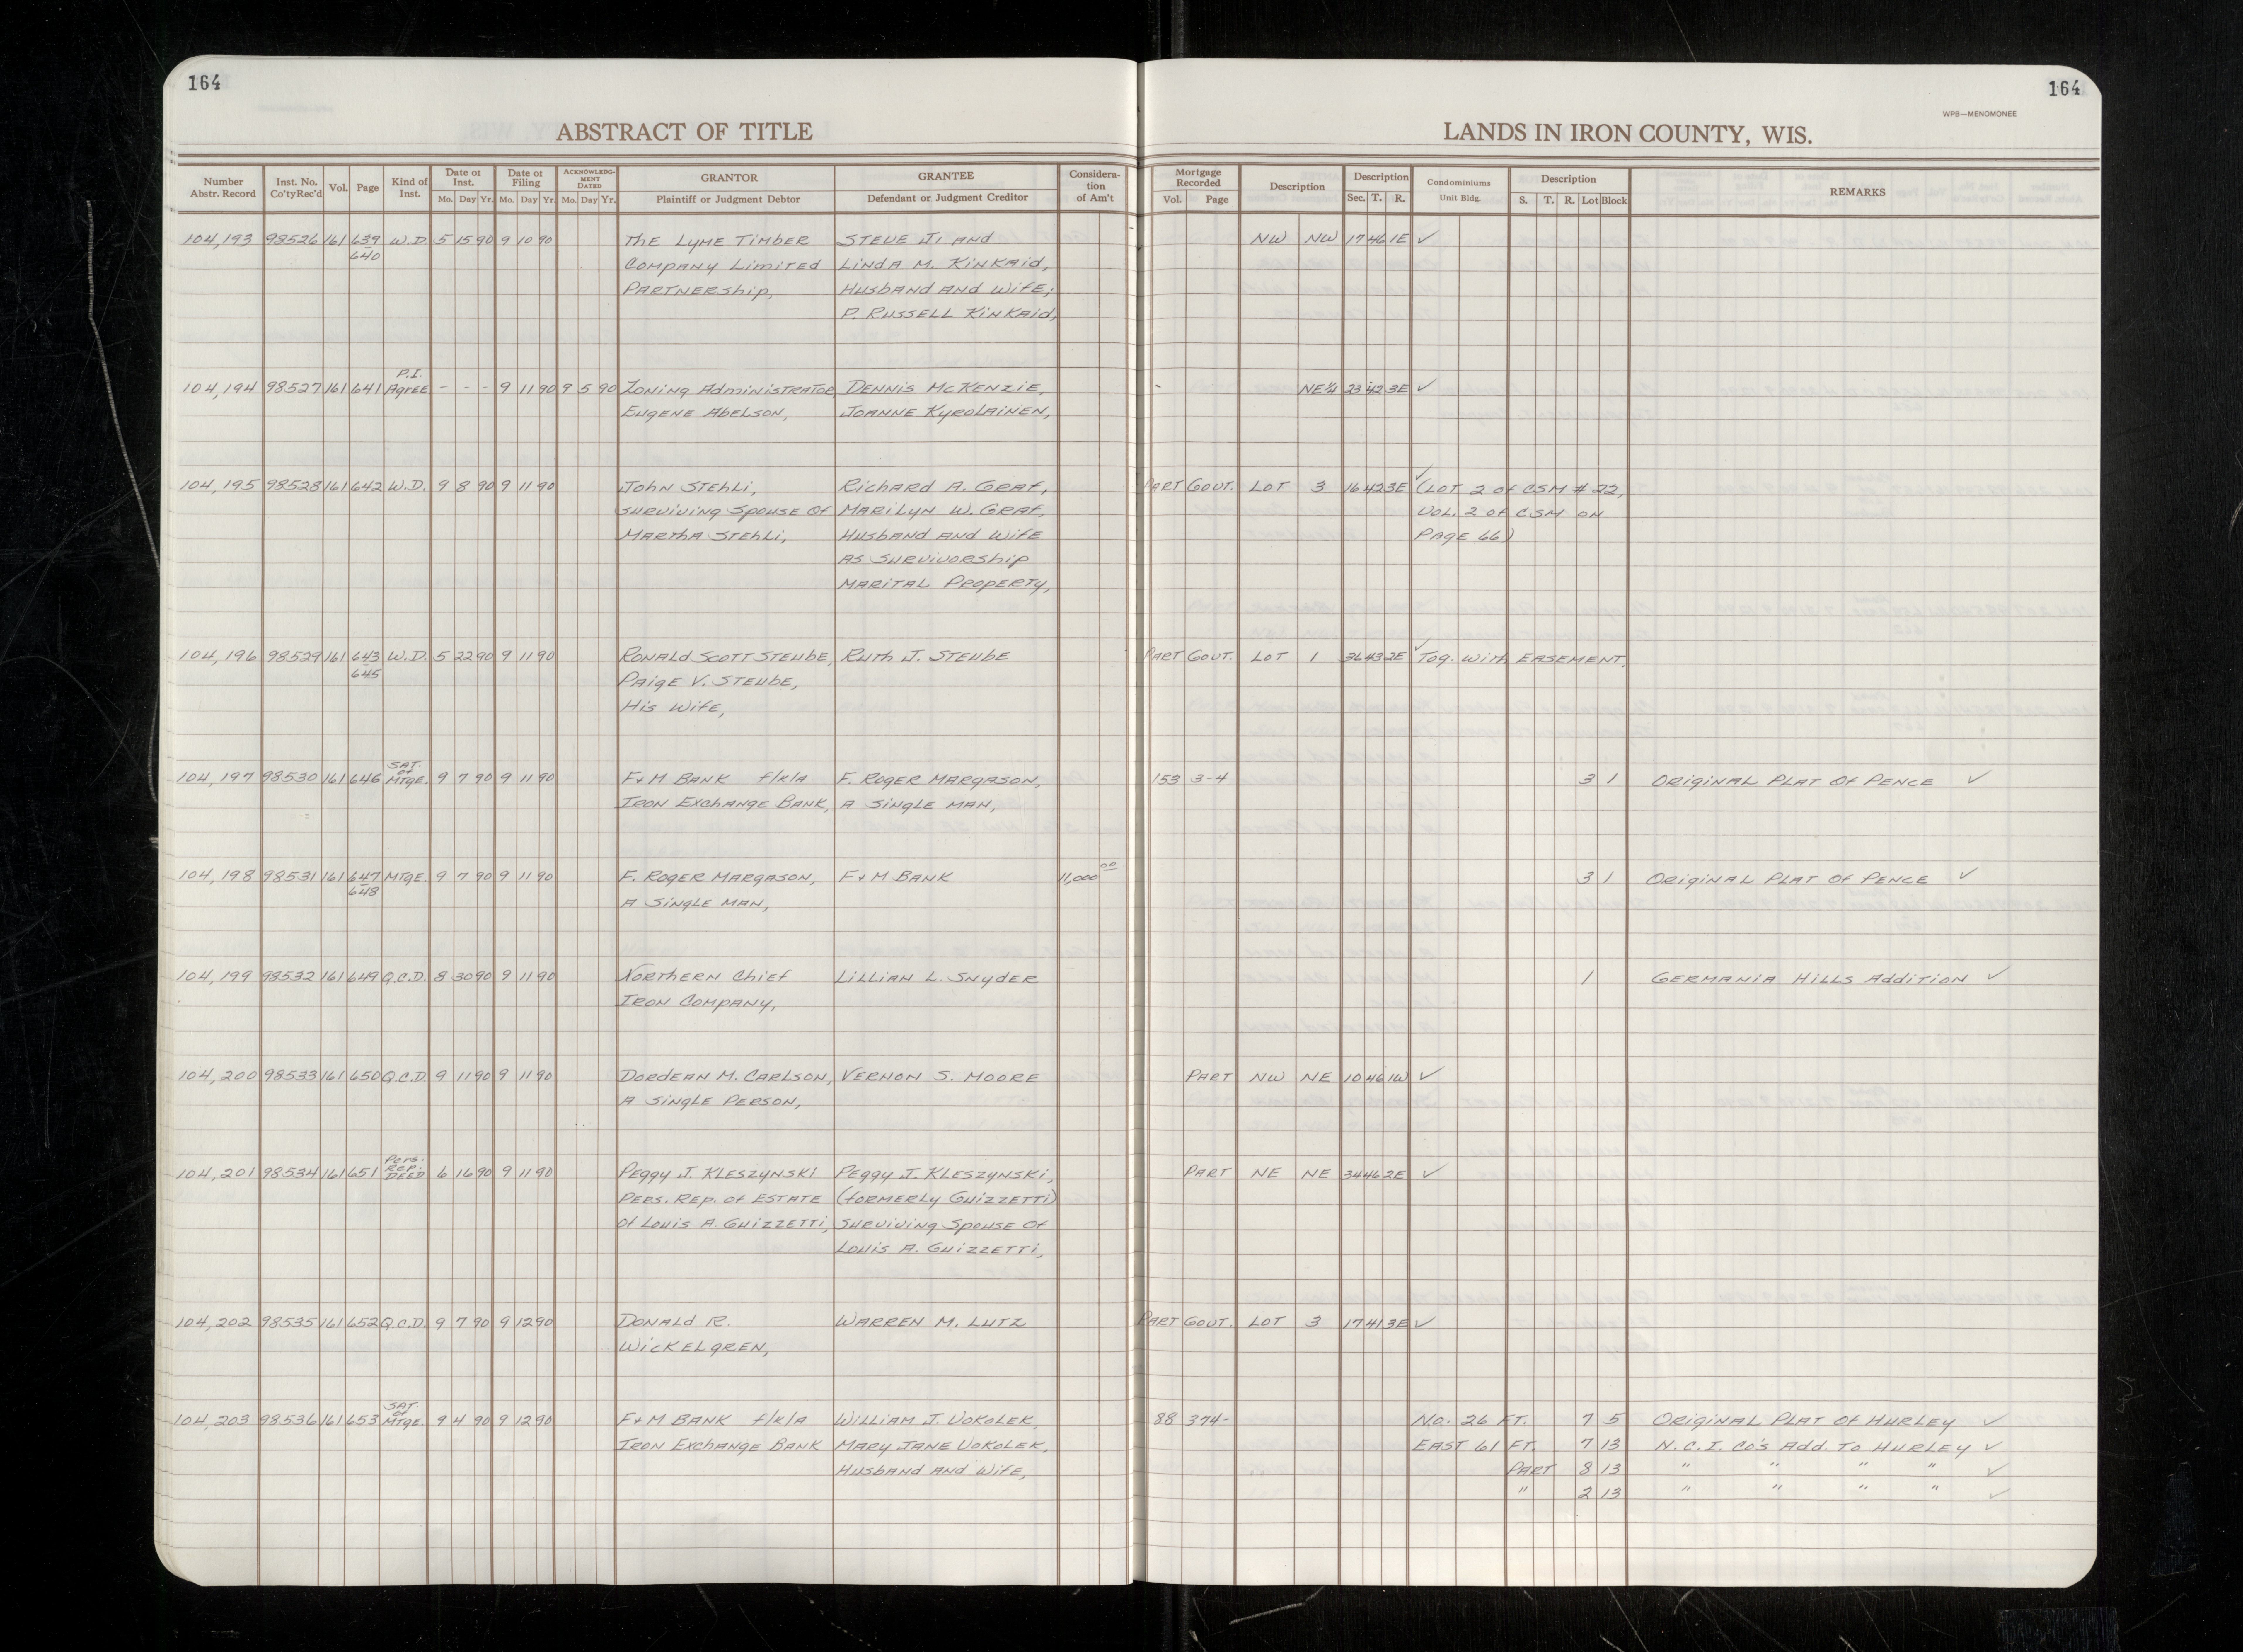 164
164
WPB—MENOMONEE
ABSTRACT OF TITLE
LANDS IN IRON COUNTY, WIS.
Number Abstr. Record | Inst. No. Co'ty Rec'd | Vol. | Page | Kind of Inst. | Date of Inst. Mo. Day Yr. | Date of Filing Mo. Day Yr. | ACKNOWLEDGMENT DATED Mo. Day Yr. | GRANTOR Plaintiff or Judgment Debtor | GRANTEE Defendant or Judgment Creditor | Consideration of Am't | Mortgage Recorded Vol. Page | Description | Description Sec. T. R. | Condominiums Unit Bldg. | Description S. T. R. Lot Block | REMARKS
104,193 98526 161 639 W.D. 5 15 90 9 10 90 The Lyme Timber Steve J. and NW NW 17 46 1E ✓
640 Company Limited Linda M. Kinkaid,
Partnership, Husband and Wife;
P. Russell Kinkaid,
P.I.
104,194 98527 161 641 Agree - - - 9 11 90 9 5 90 Zoning Administrator, Dennis McKenzie, - NE¼ 23 42 3E ✓
Eugene Abelson, Joanne Kyrolainen,
104,195 98528 161 642 W.D. 9 8 90 9 11 90 John Stehli, Richard A. Graf, Part Govt. Lot 3 16 42 3E ✓ (Lot 2 of CSM #22,
Surviving Spouse of Marilyn W. Graf, Vol. 2 of CSM on
Martha Stehli, Husband and Wife Page 66)
as Survivorship
Marital Property,
104,196 98529 161 643 W.D. 5 22 90 9 11 90 Ronald Scott Steube, Ruth J. Steube Part Govt. Lot 1 36 43 2E ✓ Tog. with Easement,
645 Paige V. Steube,
His Wife,
Sat. of
104,197 98530 161 646 Mtge. 9 7 90 9 11 90 F+M Bank f/k/a F. Roger Margason, 153 3-4 3 1 Original Plat of Pence ✓
Iron Exchange Bank, a single man,
104,198 98531 161 647 Mtge. 9 7 90 9 11 90 F. Roger Margason, F+M Bank 11,000 00 3 1 Original Plat of Pence ✓
648 a single man,
104,199 98532 161 649 Q.C.D. 8 30 90 9 11 90 Northern Chief Lillian L. Snyder 1 Germania Hills Addition ✓
Iron Company,
104,200 98533 161 650 Q.C.D. 9 11 90 9 11 90 Dordean M. Carlson, Vernon S. Moore Part NW NE 10 46 1W ✓
a single person,
Pers. Rep.
104,201 98534 161 651 Deed 6 16 90 9 11 90 Peggy J. Kleszynski Peggy J. Kleszynski, Part NE NE 34 46 2E ✓
Pers. Rep. of Estate (formerly Guizzetti)
of Louis A. Guizzetti, Surviving Spouse of
Louis A. Guizzetti,
104,202 98535 161 652 Q.C.D. 9 7 90 9 12 90 Donald R. Warren M. Lutz Part Govt. Lot 3 17 41 3E ✓
Wickelgren,
Sat. of
104,203 98536 161 653 Mtge. 9 4 90 9 12 90 F+M Bank f/k/a William J. Vokolek, 88 374- No. 26 Ft. 7 5 Original Plat of Hurley ✓
Iron Exchange Bank Mary Jane Vokolek, East 61 Ft. 7 13 N.C.I. Co's Add. to Hurley ✓
Husband and Wife, Part 8 13 " " " " ✓
" 2 13 " " " " ✓